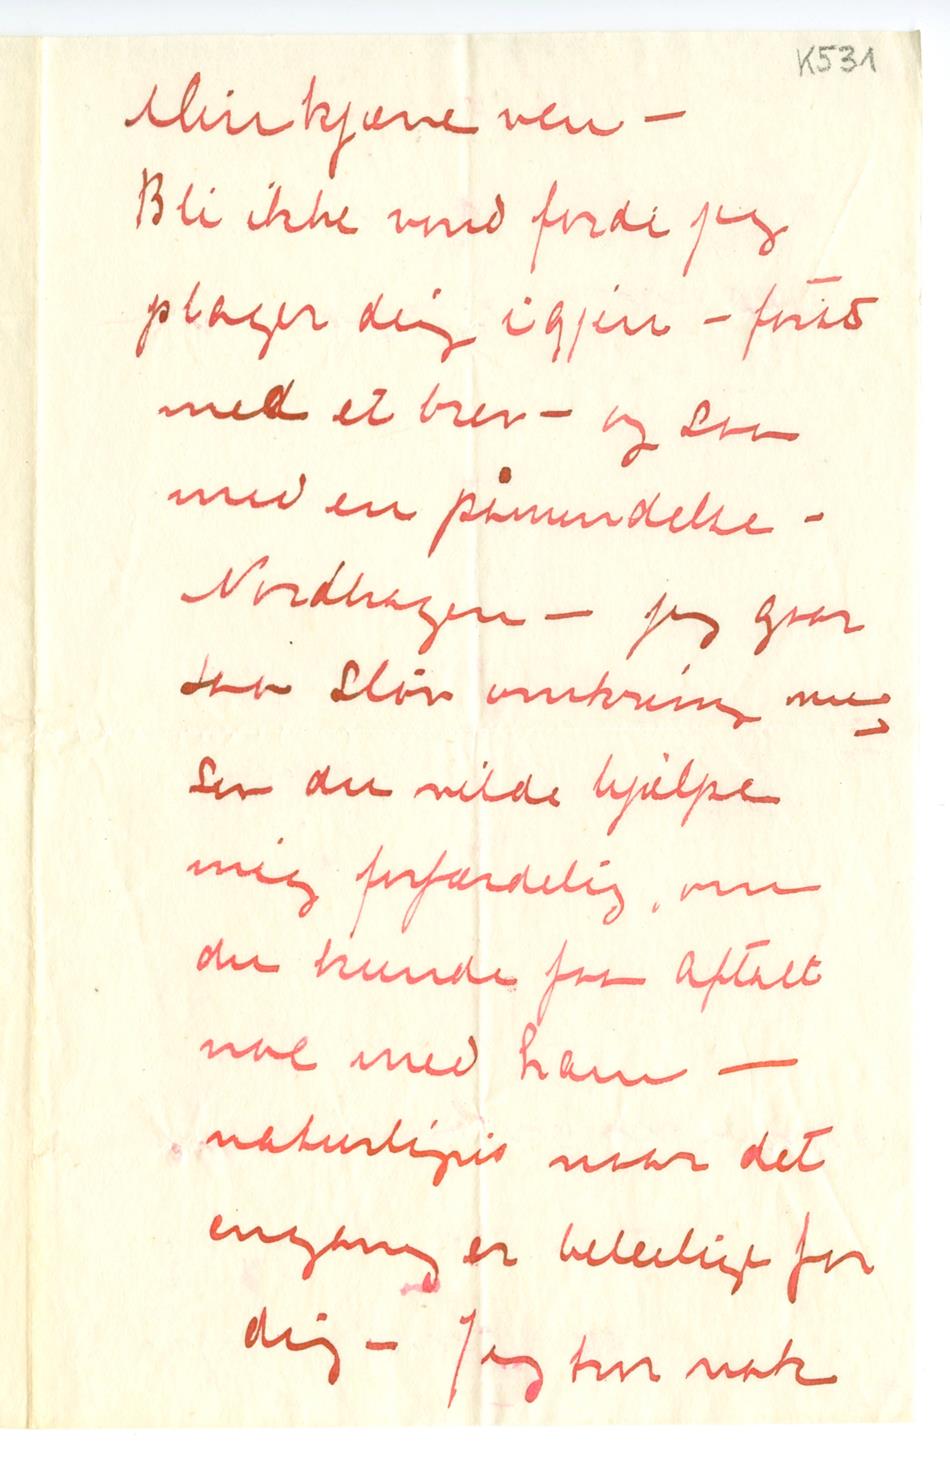 K531
Min kjære ven –
Bli ikke vond fordi jeg
plager dig igjen – först
med et brev – og saa
med en påmindelse –
Nordhagen – jeg gaar
saa sløv omkring nu,
du vilde hjælpe
mig forfærdelig, om
du kunde faa aftalt
noe med ham —
naturligvis naar det
engang er beleiligt for
dig – Jeg tror nok